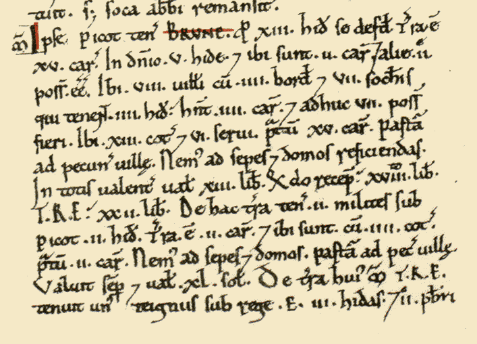 tuit. s; soca abbi remansit.
ꝳ Ipse picot ten̄ BRVNE. ꝑ .xiii. hid̄ se defd̄. T̄ra.ē
xv. car̄. In dn̄io .v. hide. ⁊ ibi sunt .ii. car̄. ⁊ aliæ .ii.
poss̄.ee. Ibi .viii. uilli cū .iiii. bord̄ ⁊ vii. soch̄is
qui tenent .iiii. hid̄. hn̄t .iiii. car̄. ⁊ adhuc vii. poss̄
fieri. Ibi .xiii. cot̄ ⁊ vi. serui. p̄tū xv. car̄. Pastā
ad pecun̄ uillę. Nem̄ ad sepes ⁊ domos reficiendas.
In totis ualent̄ ual̄ xiii. lib̄. X do recep̄: xviii. lib̄.
T.R.E: xxii. lib̄. De hac t̄ra ten̄ .ii. milites sub
picot .ii. hid̄. T̄ra.ē .ii. car̄. ⁊ ibi sunt. cū .iiii. cot̄.
p̄tū .ii. car̄. Nem̄ ad sepes ⁊ domos. pastā ad pec̄ uillę.
Valuit sēp ⁊ ual̄ .xl. sol̄. De t̄ra hui' ꝳ T.R.E.
tenuit un' teignus sub rege .E. iii. hidas. ⁊ ii. p̄bri